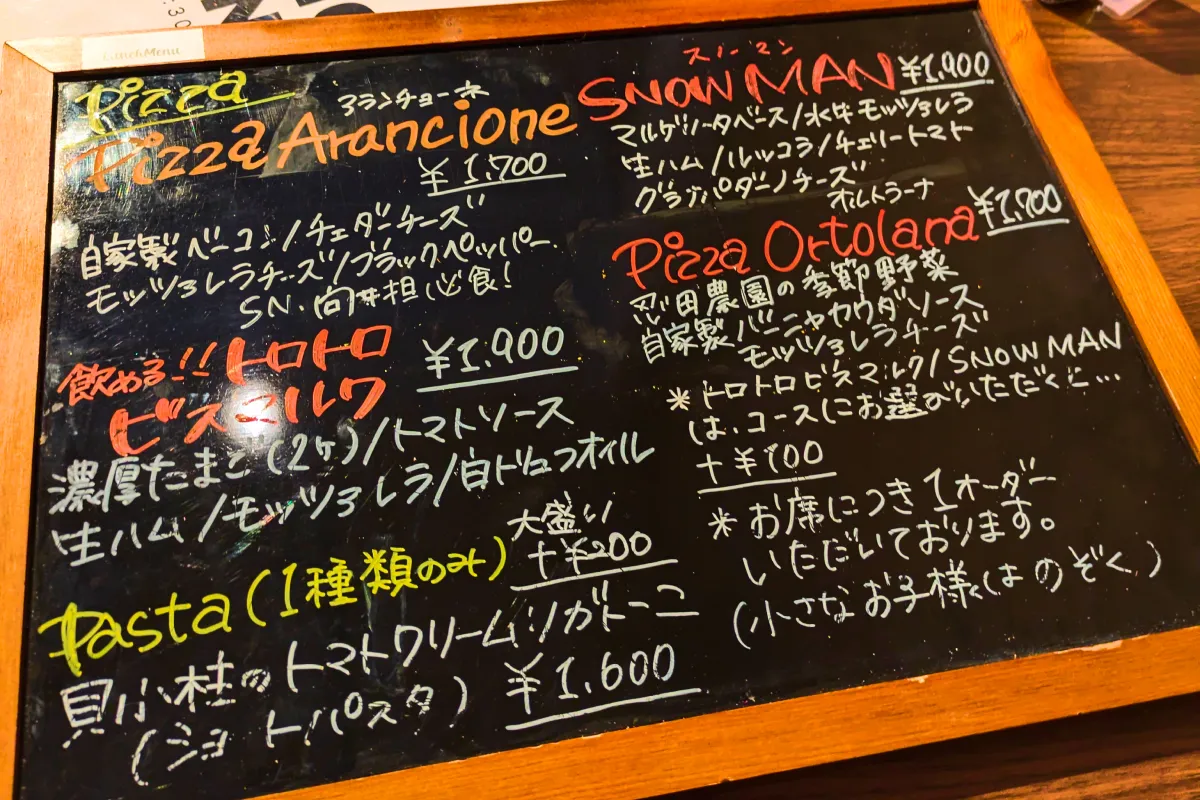 Lunch Menu
Pizza
アランチョーネ
Pizza Arancione
¥1,700
自家製ベーコン/チェダーチーズ
モッツァレラチーズ/ブラックペッパー
SN.向井担 必食!
飲める!! トロトロ
ビスマルク
¥1,900
濃厚たまご(2ヶ)/トマトソース
生ハム/モッツァレラ/白トリュフオイル
Pasta(1種類のみ)
大盛り
+¥200
貝小柱のトマトクリームリガトーニ
(ショートパスタ)
¥1,600
スノーマン
SNOW MAN ¥1,900
マルゲリータベース/水牛モッツァレラ
生ハム/ルッコラ/チェリートマト
グラナパダーノチーズ
オルトラーナ
Pizza Ortolana ¥1,700
忍田農園の季節野菜
自家製バーニャカウダソース
モッツァレラチーズ
*トロトロビスマルク/SNOW MAN
は、コースにお選びいただくと...
+¥100
*お席につき1オーダー
いただいております。
(小さなお子様はのぞく)